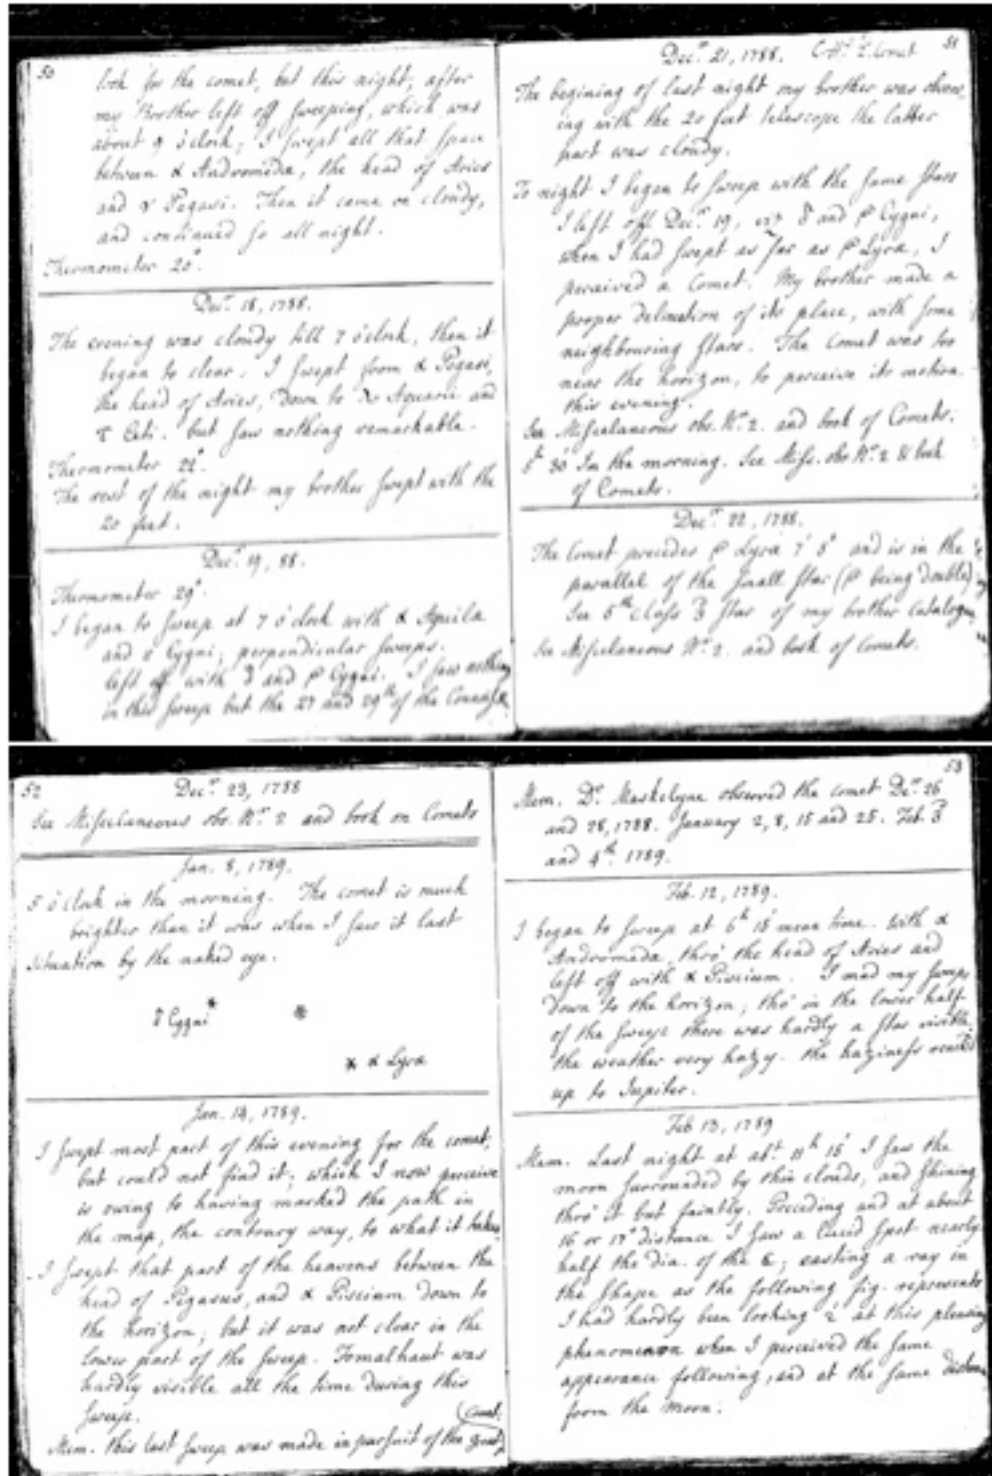 50
look for the comet, but this night, after
my Brother left off sweeping, which was
about 9 o'clock; I swept all that space
between α Andromeda, the head of Aries
and γ Pegasi. Then it came on cloudy,
and continued so all night.
Thermometer 20°.
Decr 18, 1788.
The evening was cloudy till 7 o'clock, then it
began to clear. I swept from α Pegasi,
the head of Aries, down to Aquarii and
Ceti. but saw nothing remarkable.
Thermometer 22°.
The rest of the night my brother swept with the
20 feet.
Decr 19, 88.
Thermometer 29°.
I began to sweep at 7 o'clock with α Aquila
and Cygni; perpendicular sweeps.
left off with δ and β Cygni. I saw nothing
in this sweep but the 27 and 29th of the Connoiss.
51
Decr 21, 1788. Comet
The begining of last night my brother was observ-
ing with the 20 feet telescope the latter
part was cloudy.
To night I began to sweep with the same stars
I left off Decr 19, viz δ and β Cygni,
when I had swept as far as β Lyra, I
perceived a Comet. My brother made a
proper delineation of its place, with some
neighbouring stars. The Comet was too
near the horizon, to perceive its motion
this evening.
See Miscelaneous obs. Nr. 2. and book of Comets.
5h 30' In the morning. See Miss. obs Nr. 2 & book
of Comets.
Decr 22, 1788.
The Comet precedes β Lyra 7' 5" and is in the
parallel of the small star (β being double)
See 5th class 3 star of my brother Catalogue
See Miscelaneous Nr. 2. and book of Comets.
52
Decr 23, 1788
See Miscelaneous obs. Nr. 2 and book on Comets
Jan. 8, 1789.
5 o'clock in the morning. The comet is much
brighter than it was when I saw it last
situation by the naked eye.
δ Cygni
α Lyra
Jan. 14, 1789.
I swept most part of this evening for the comet,
but could not find it; which I now perceive
is owing to having marked the path in
the map, the contrary way, to what it takes.
I swept that part of the heavens between the
head of Pegasus, and α Piscium down to
the horizon; but it was not clear in the
lower part of the sweep. Fomalhaut was
hardly visible all the time during this
sweep.
Mem. this last sweep was made in pursuit of the great
Comet.
53
Mem. Dr. Maskelyne observed the comet Decr 26
and 28, 1788. January 2, 8, 15 and 25. Feb. 3
and 4th. 1789.
Feb. 12, 1789.
I began to sweep at 6h 15' mean time. with α
Andromeda, thro' the head of Aries and
left off with α Piscium. I mad my sweeps
down to the horizon; tho' in the lower half
of the sweep there was hardly a star visible
the weather very hazy. the haziness reach'd
up to Jupiter.
Feb 13, 1789
Mem. Last night at abt 11h 15' I saw the
moon surrounded by thin clouds, and shining
thro' it but faintly. Preceding and at about
16 or 17° distance I saw a lucid spot nearly
half the dia. of the ☾; casting a ray in
the shape as the following fig. represents
I had hardly been looking 2' at this pleasing
phenomenon when I perceived the same
appearance following, and at the same distance
from the Moon: